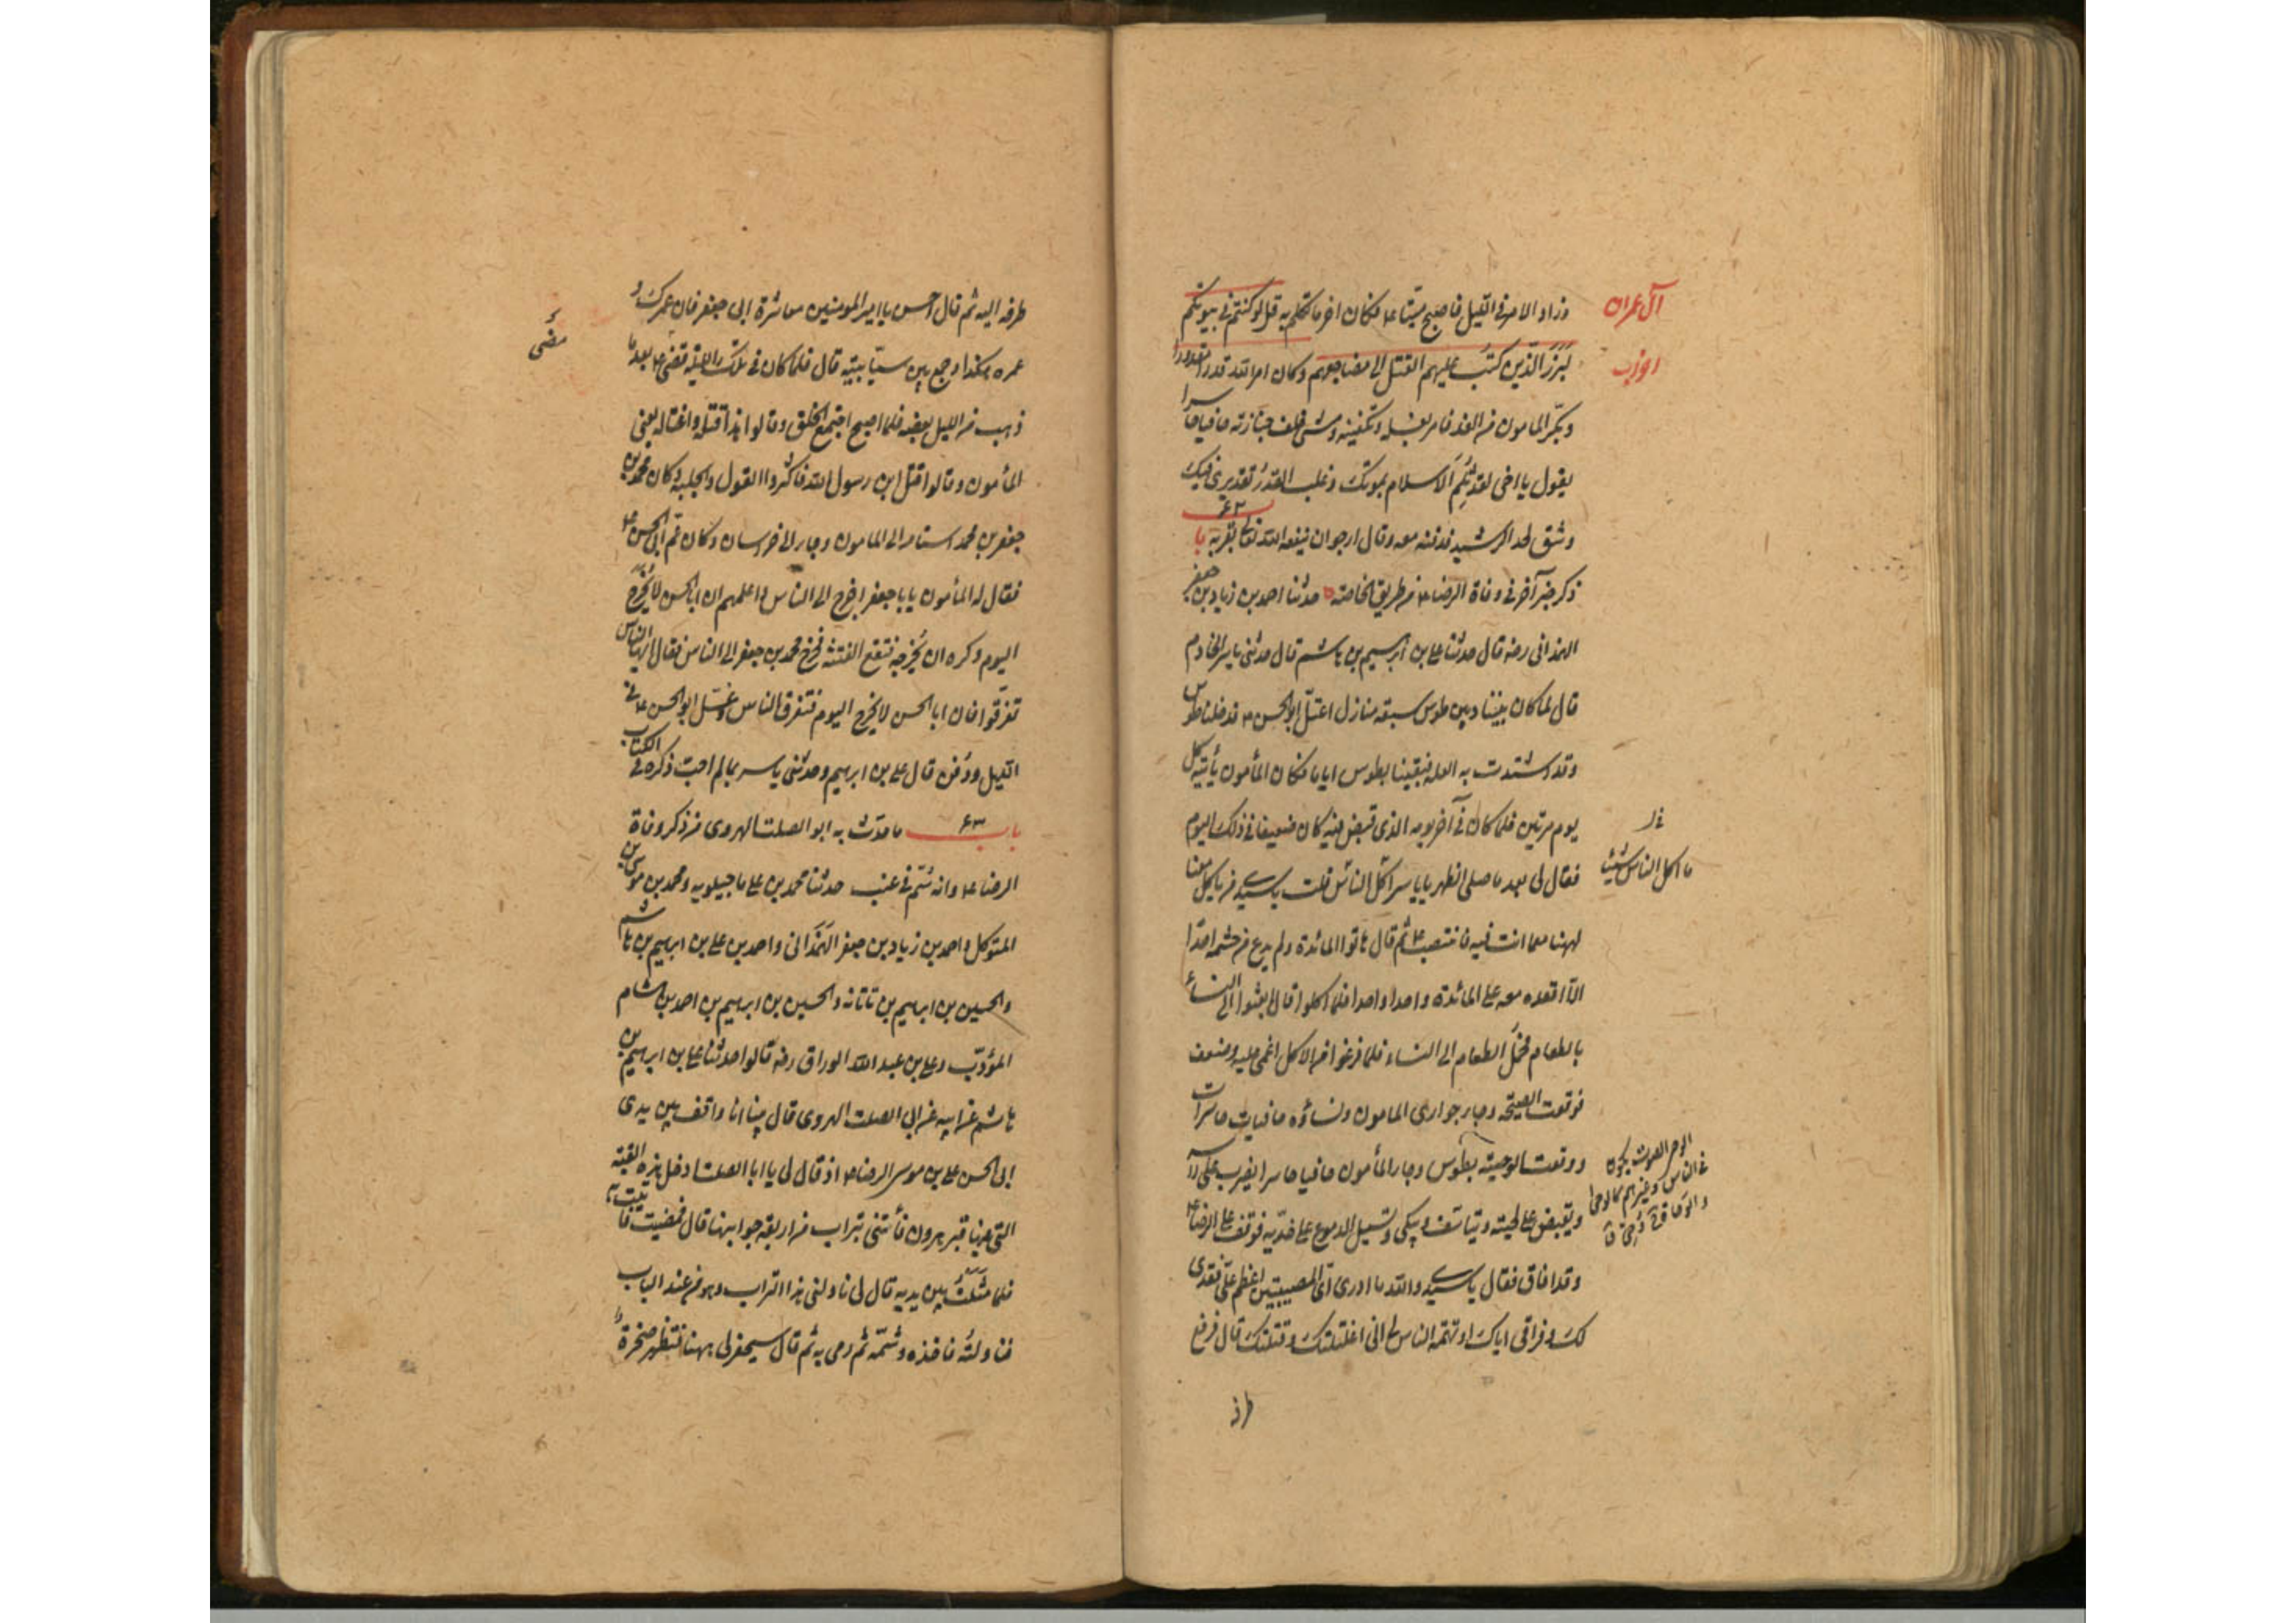 وزاد الامر فى الليل فاصبح ميّتا ع فكان اخر ما تكلم به قل لو كنتم فى بيوتكم
لبرز الذين كتب عليهم القتل الى مضاجعهم وكان امر الله قدرا مقدورا
وبكّر المامون من الغد فامر بغسله وتكفينه ومشى خلف جنازته حافيا حاسرا
يقول يا اخى لقد ثلم الاسلام بموتك وغلب القدر تقديرى فيك
وشق لحد الرشيد فدفنه معه وقال ارجو ان ينفعه الله تعالى بقربه با ٦٢
ذكر خبر آخر فى وفاة الرضا ع من طريق الخاصة حدثنا احمد بن زياد بن جعفر
الهمذانى رضه قال حدثنا على بن ابرهيم بن هاشم قال حدثنى ياسر الخادم
قال لما كان بيننا وبين طوس سبعة منازل اعتلّ ابو الحسن ع فدخلنا طوس
وقد اشتدت به العلة فبقينا بطوس اياما فكان المأمون يأتيه كل
يوم مرتين فلما كان فى آخر يومه الذى قبض فيه كان ضعيفا فى ذلك اليوم
فقال لى بعد ما صلى الظهر يا ياسر اكل الناس قلت يا سيدى من يأكل
ههنا مع ما انت فيه فانتصب ع ثم قال هاتوا المائدة ولم يدع من حشمه احدا
الا اقعده معه على المائدة واحدا واحدا فلما اكلوا قال ابعثوا الى النساء
بالطعام فحمل الطعام الى النساء فلما فرغوا من الاكل اغمى عليه وضعف
فوقعت الصيحة وجاء جوارى المامون ونساؤه حافيات حاسرات
ووقعت الوحية بطوس وجاء المأمون حافيا حاسرا يضرب على رأسه
ويقبض على لحيته ويتاسف ويبكى وتسيل الدموع على خديه فوقف على الرضا ع
وقد افاق فقال يا سيدى والله ما ادرى اىّ المصيبتين اعظم علىّ فقدى
لك وفراقى اياك او تهمة الناس لى انى اغتلتك وقتلتك قال فرفع
طرفه
آل عمران
احزاب
ما اكل الناس شيئا
طرفه اليه ثم قال احسن يا امير المومنين معاشرة ابى جعفر فان عمرك و
عمره هكذا وجمع بين سبّابتيه قال فلما كان فى تلك الليلة قضى ع بعد ما
ذهب من الليل بعضه فلما اصبح اجتمع الخلق وقالوا هذا قتله واغتاله يعنى
المأمون وقالوا قتل ابن رسول الله فاكثروا القول والجلبة وكان محمد بن
جعفر بن محمد استامن الى المامون وجاء الى خراسان وكان عم ابى الحسن ع
فقال له المأمون يا با جعفر اخرج الى الناس واعلمهم ان ابا الحسن لا يخرج
اليوم وكره ان يخرجه فتقع الفتنة فخرج محمد بن جعفر الى الناس فقال ايها الناس
تفرقوا فان ابا الحسن لا يخرج اليوم فتفرق الناس وغسّل ابو الحسن ع فى
الليل ودفن قال على بن ابرهيم وحدثنى ياسر بما لم احب ذكره فى الكتاب
باب ٦٣ ما حدّث به ابو الصلت الهروى من ذكر وفاة
الرضا ع وانه سمّ فى عنب حدثنا محمد بن على ماجيلويه ومحمد بن موسى بن
المتوكل واحمد بن زياد بن جعفر الهمذانى واحمد بن على بن ابرهيم بن هاشم
والحسين بن ابرهيم بن تاتانه والحسين بن ابرهيم بن احمد بن هشام
المؤدّب وعلى بن عبد الله الوراق رضه قالوا حدثنا على بن ابرهيم بن
هاشم عن ابيه عن ابى الصلت الهروى قال بينا انا واقف بين يدى
ابى الحسن على بن موسى الرضا ع اذ قال لى يا ابا الصلت ادخل هذه القبة
التى فيها قبر هرون فأتنى بتراب من اربعة جوانبها قال فمضيت فاتيت به
فلما مثلت بين يديه قال لى ناولنى هذا التراب وهو من عند الباب
فناولته فاخذه وشمّه ثم رمى به ثم قال سيحفر لى ههنا فتظهر صخرة
مضى